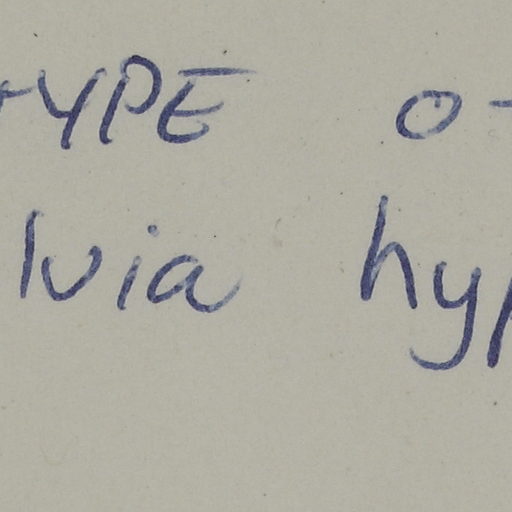 TYPE O
lvia hyp